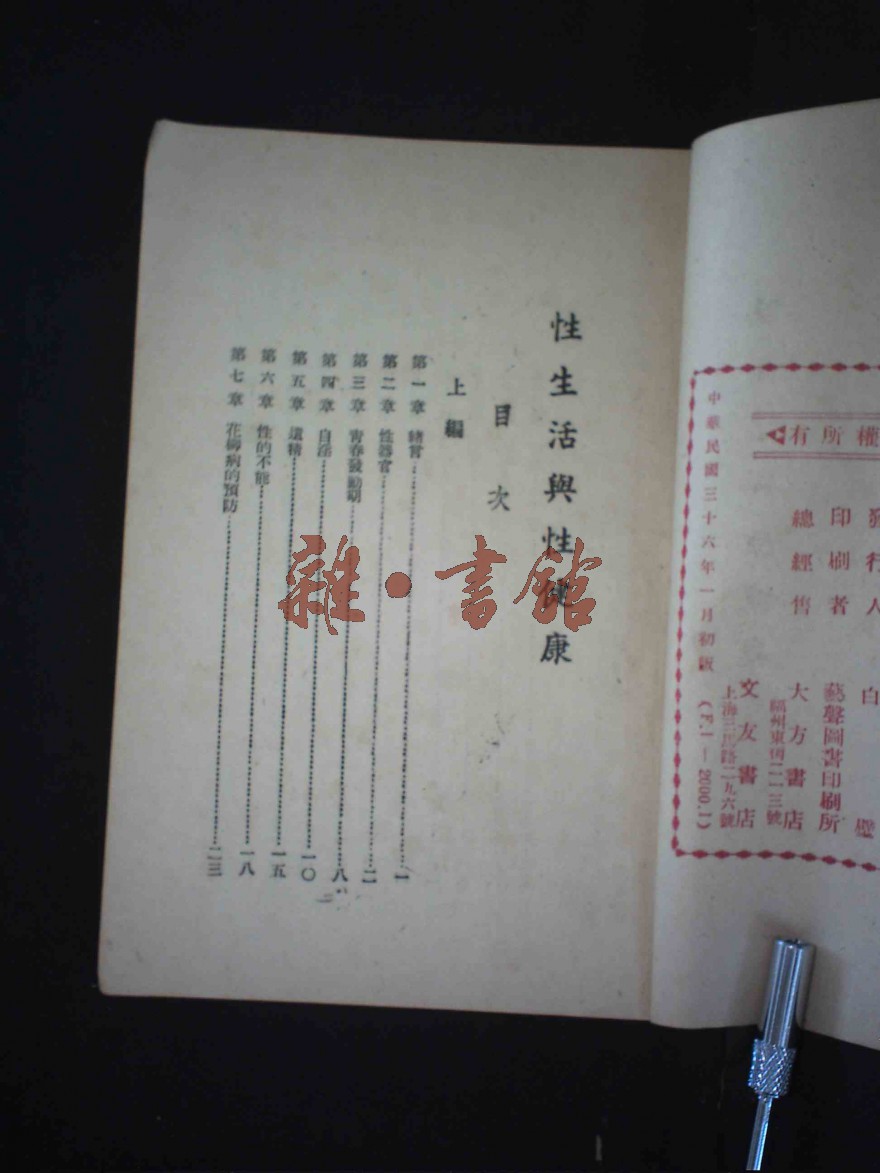 有所權
發行人
白
壁
印刷者
藝聲圖書印刷所
總經售
大方書店
福州東街一一三號
文友書店
上海三馬路二九六號
中華民國三十六年一月初版
(F.1—2000.1)
性生活與性健康
目次
上編
第一章 緒言 一
第二章 性器官 二
第三章 青春發動期 八
第四章 自淫 一〇
第五章 遺精 一五
第六章 性的不能 一八
第七章 花柳病的預防 二三
雜·書館